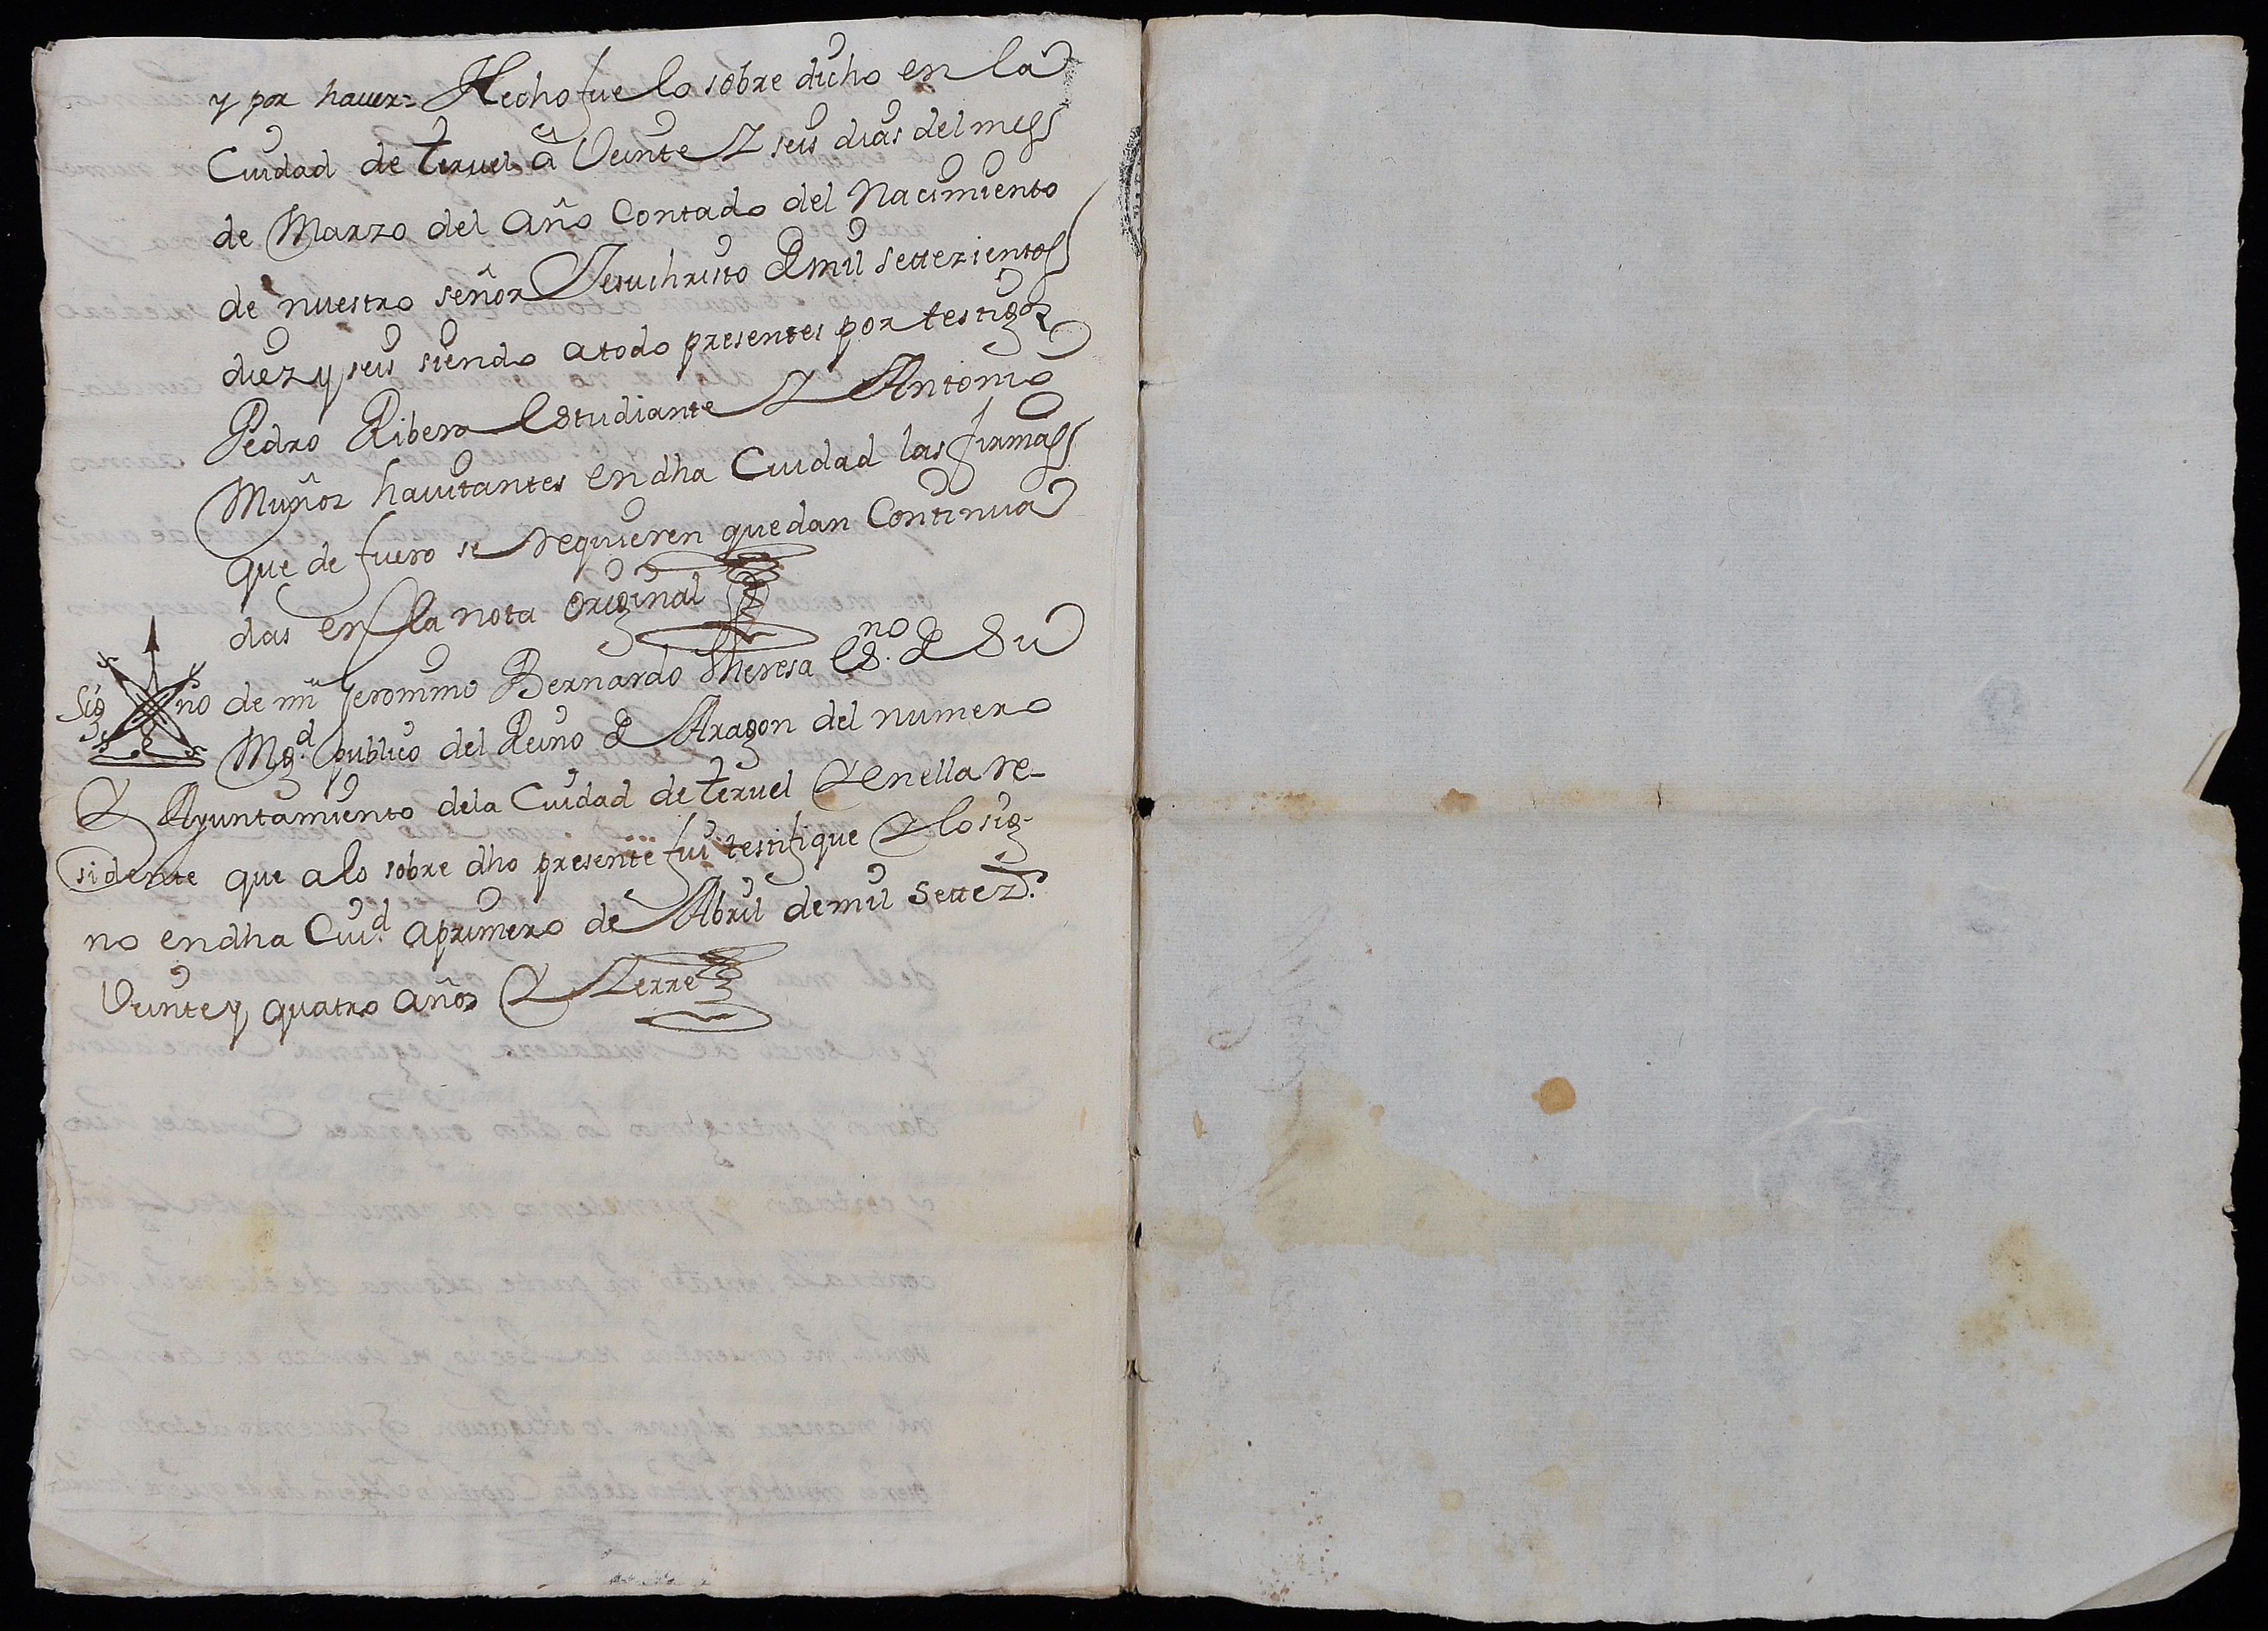 y por haver= Hecho fue lo sobre dicho en la
Ciudad de teruel à Veinte Y seis dias del mess
de Marzo del Año Contado del Nacimiento
de nuestro señor Jesuchristo de mil settezientoss
diez y seis siendo a todo presentes por testigos
Pedro Ribera Estudiante Y Antonio
Muñoz havitantes en dha Ciudad las firmass
que de fuero se requieren quedan Continua
das en la nota original
Sig no de mi Jeronimo Bernardo Theresa Es.no de Su
Mg.d publico del Reino de Aragon del numero
Y Ayuntamiento dela Ciudad de teruel Y en ella re-
sidente que a lo sobre dho presente fui testifique Y lo sig-
no en dha Ciud.d a primero de Abril de mil Settez.s
Veinte y quatro años Y Zerre